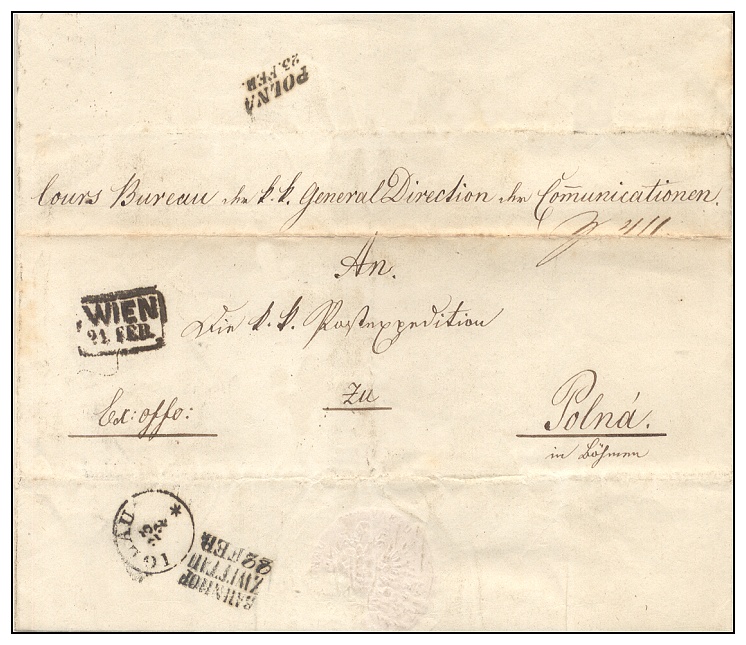 POLNA
25. FEB.
Cours Bureau der k.k. General Direction der Com̄unicationen.
An.
WIEN
21. FEB.
Die k. k. Postexpedition
Ex: offo:
zu
Polná.
in Böhmen
IGLAU
*
BAHNHOF
ZWITTAU
22 FEB.